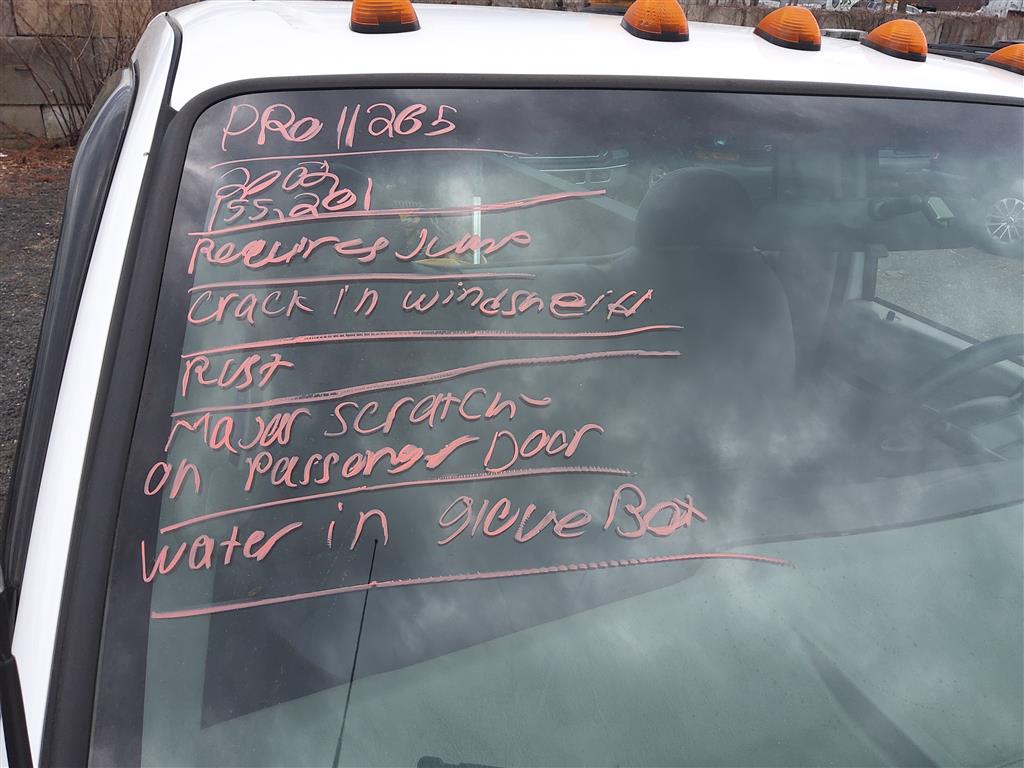 PRO 11265
2002
155,201
Requires Jump
crack in windsheild
RUST
Major scratch
on Passenger Door
water in glove Box